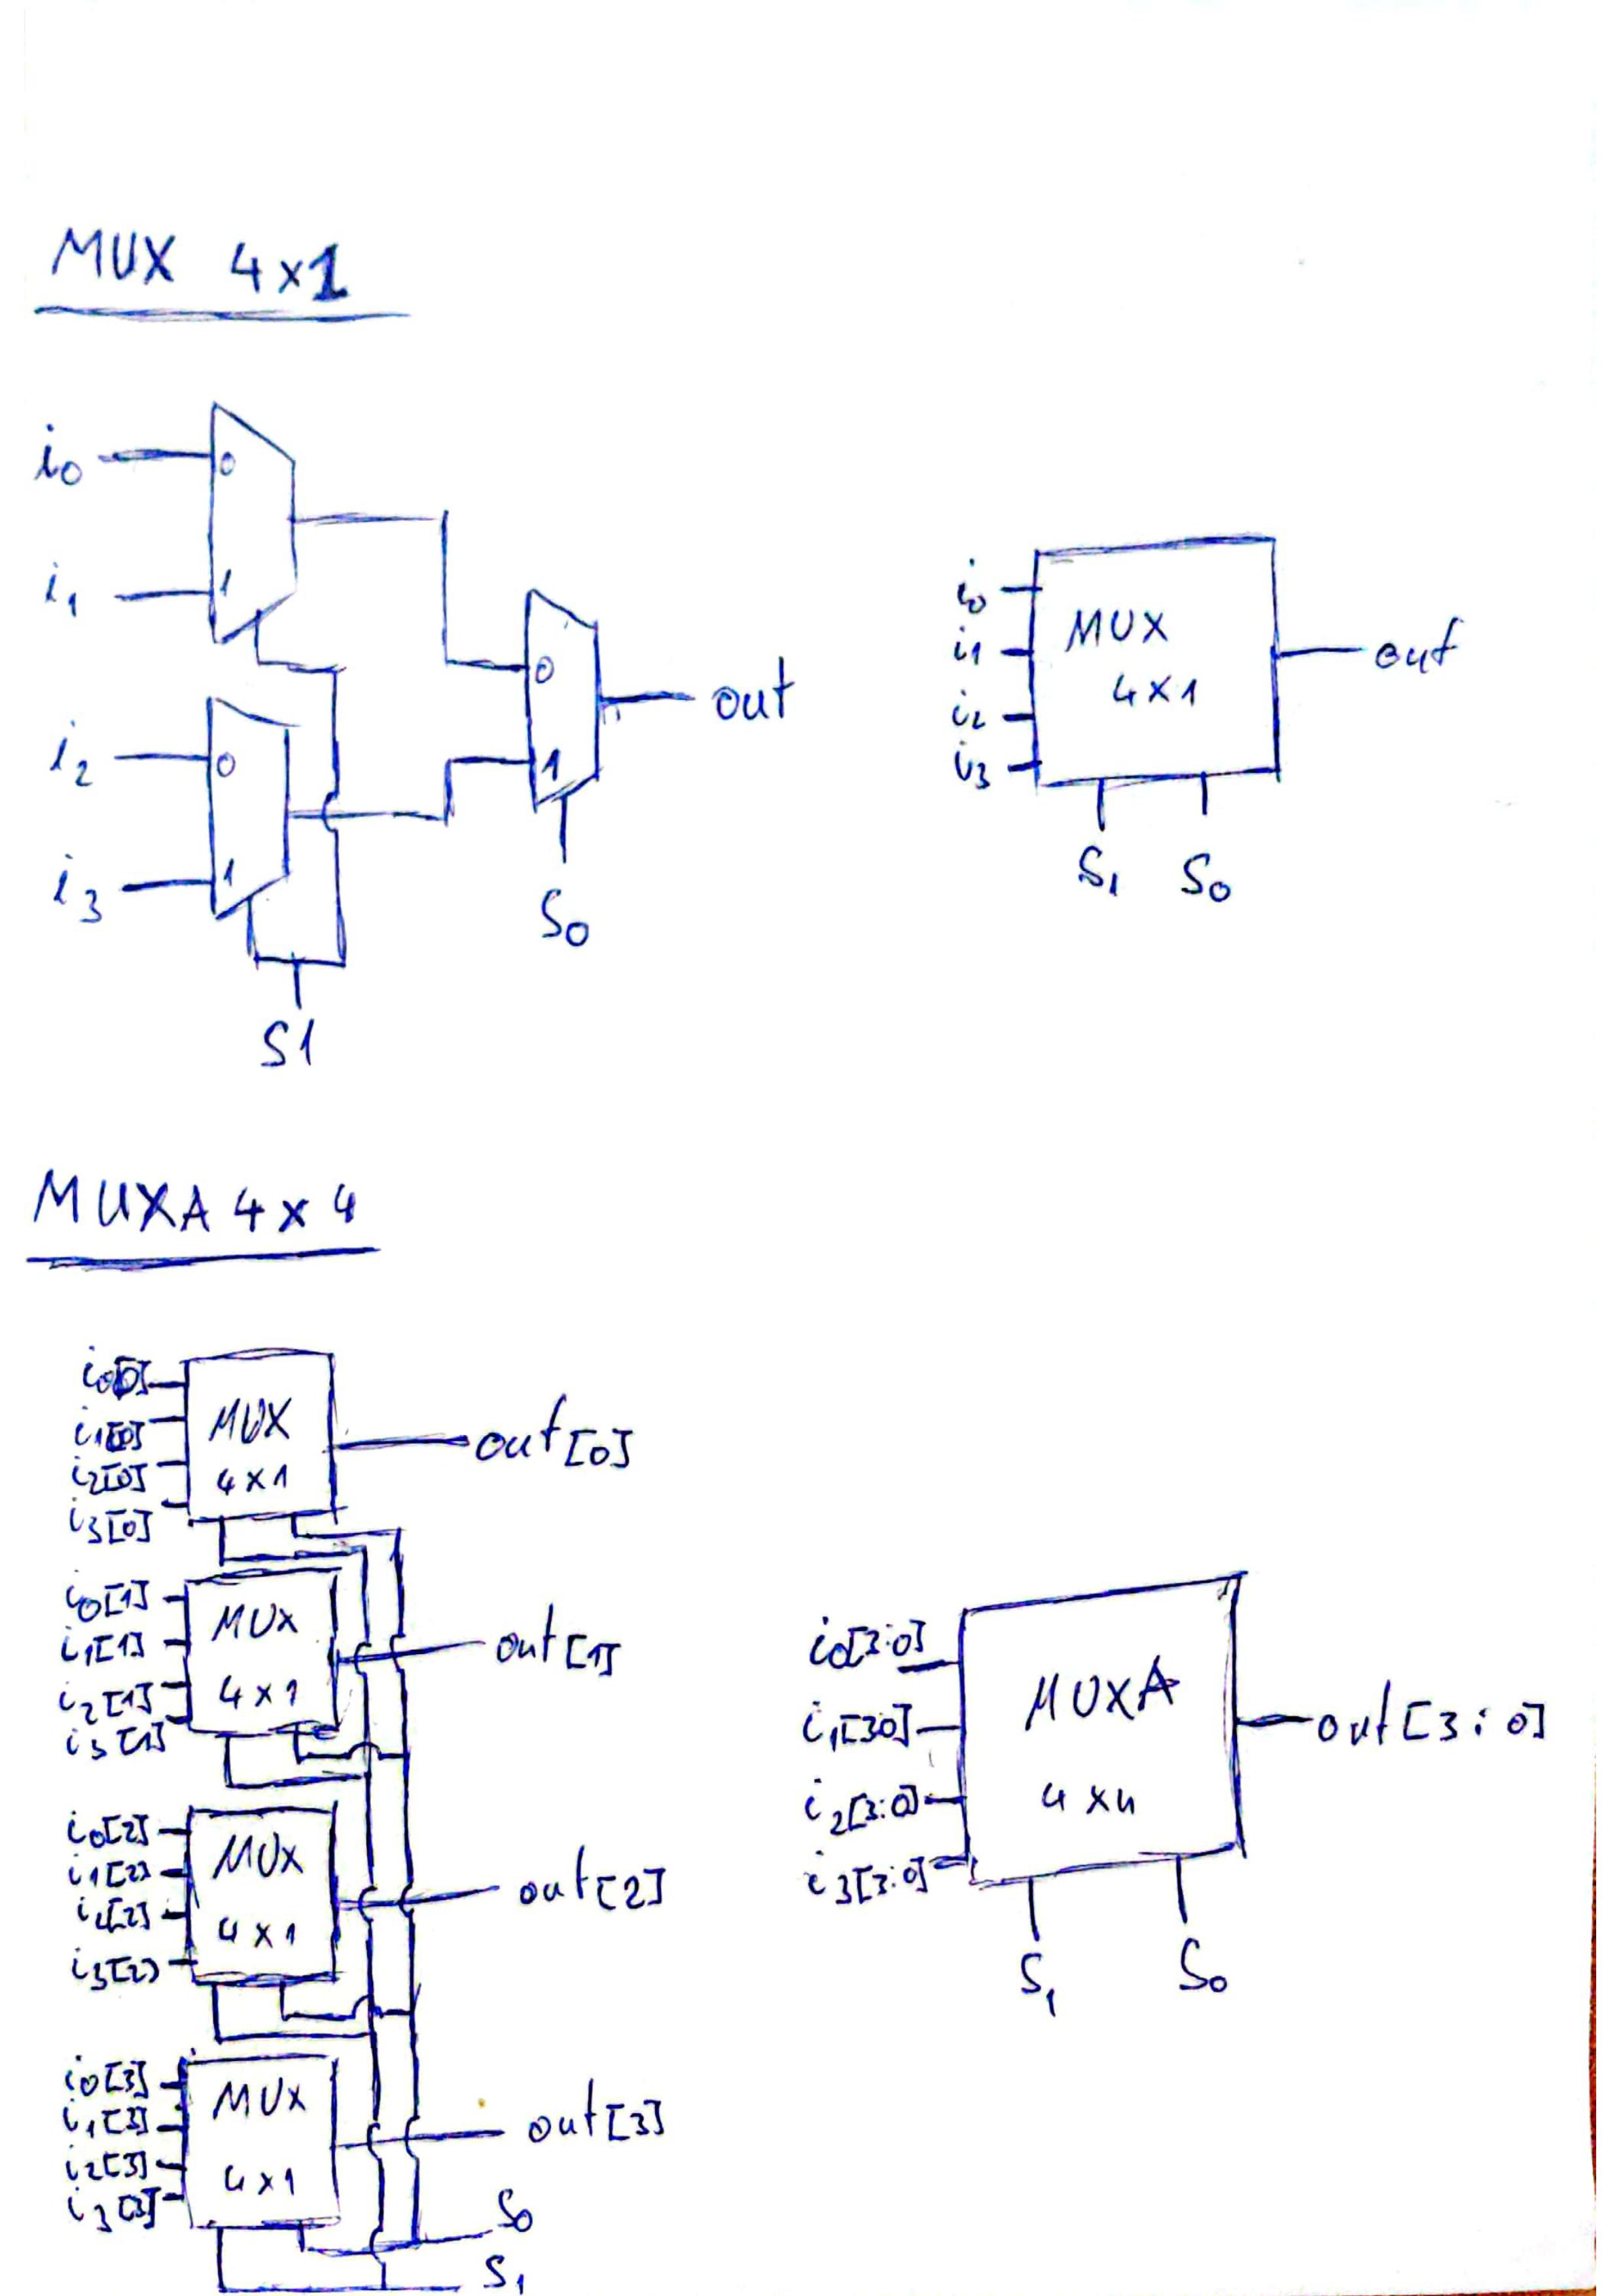 MUX 4x1
i0
0
i1
1
i2
0
i3
1
S1
0
1
S0
out
i0
i1
i2
i3
MUX
4x1
S1 S0
out
MUXA 4x4
i0[0]
i1[0]
i2[0]
i3[0]
MUX
4x1
out[0]
i0[1]
i1[1]
i2[1]
i3[1]
MUX
4x1
out[1]
i0[2]
i1[2]
i2[2]
i3[2]
MUX
4x1
out[2]
i0[3]
i1[3]
i2[3]
i3[3]
MUX
4x1
out[3]
S0
S1
i0[3:0]
i1[30]
i2[3:0]
i3[3:0]
MUXA
4x4
S1 S0
out[3:0]